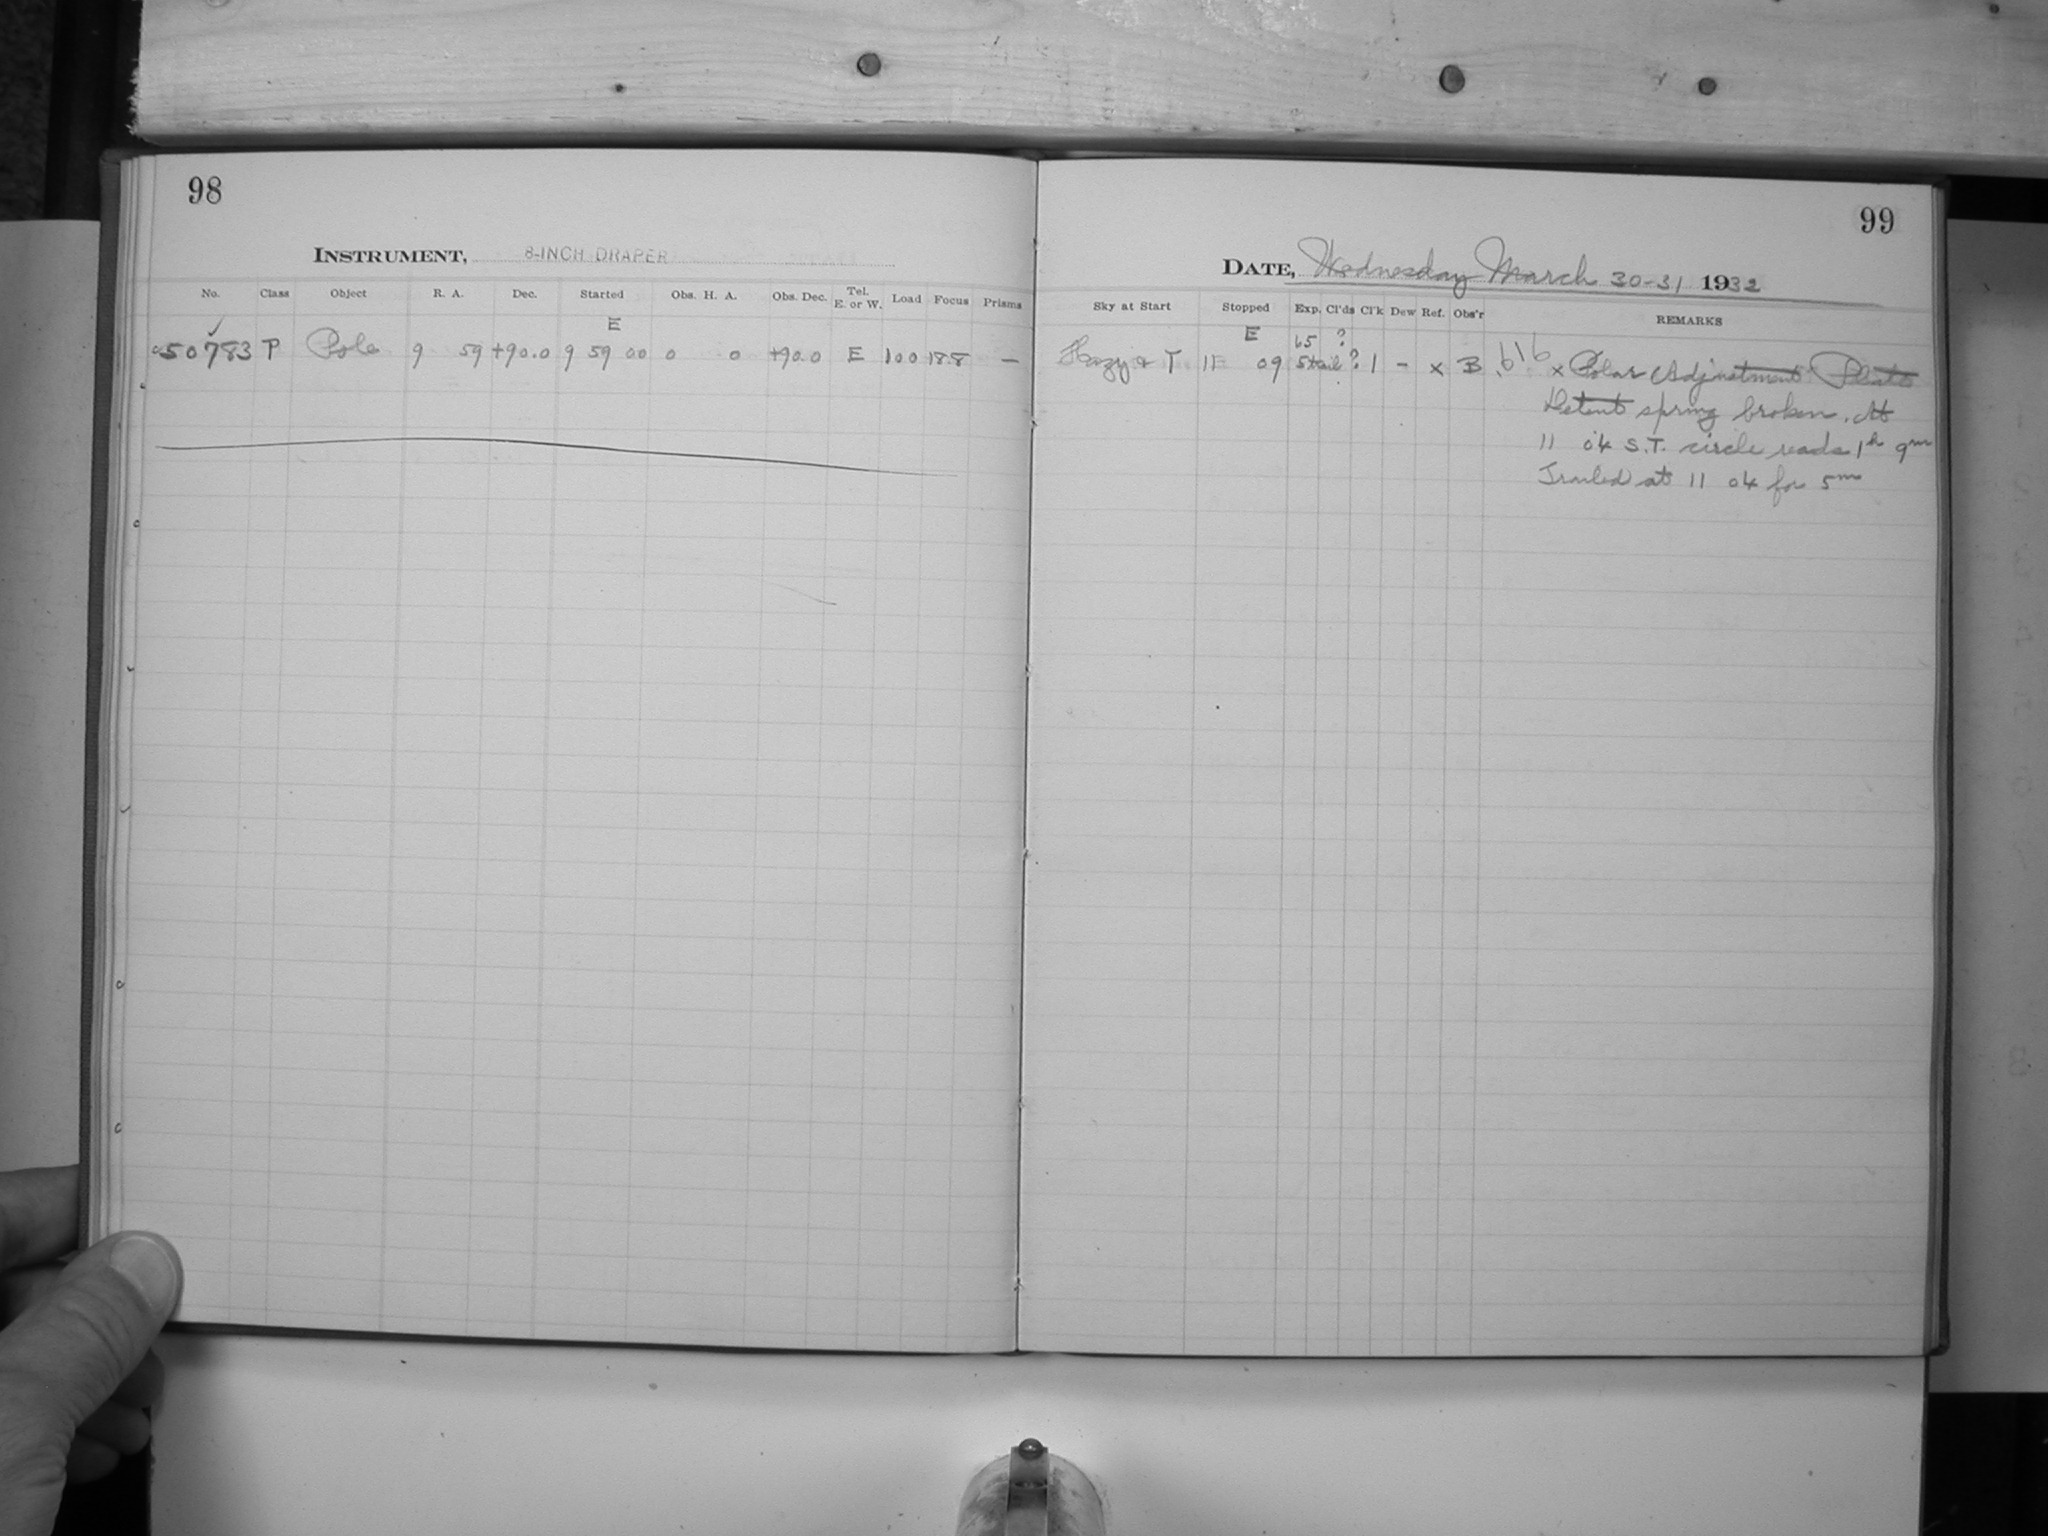 98
INSTRUMENT, 8-INCH DRAPER
No. Class Object R. A. Dec. Started Obs. H. A. Obs. Dec. Tel. E. or W. Load Focus Prisms
E
50783 P Pole 9 59 +90.0 9 59 00 0 0 +90.0 E 100 188 —
99
DATE, Wednesday March 30-31 1932
Sky at Start Stopped Exp. Cl'ds Cl'k Dew Ref. Obs'r REMARKS
E 65 ?
Hazy & T 11 09 5 trail ? 1 - x B 616 x Polar Adjustment Plate
Detent spring broken. At
11 04 S.T. circle reads 1h 9m
Trailed at 11 04 for 5m